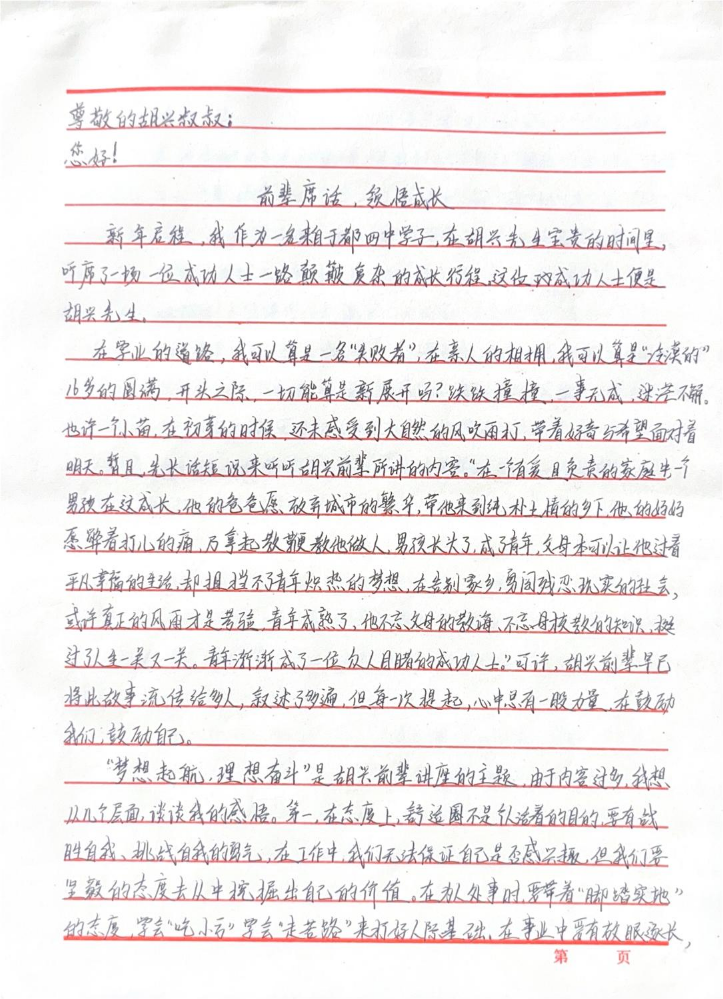 尊敬的胡兴叔叔：
您好！
前辈席话，领悟成长
新年启程，我作为一名来自于都四中学子，在胡兴先生宝贵的时间里，
听席了一场一位成功人士一路颠簸复杂的成长行程。这位对成功人士便是
胡兴先生。
在学业的道路，我可以算是一名“失败者”，在亲人的相拥，我可以算是“冷漠的”
16岁的圆满，开头之际，一切能算是新展开吗？跌跌撞撞，一事无成，迷茫不解。
也许一个小苗，在初芽的时候，还未感受到大自然的风吹雨打，带着好奇与希望面对着
明天。暂且，先长话短说，来听听胡兴前辈所讲的内容。“在一个有爱且负责的家庭生个
男孩在这成长，他的爸爸愿放弃城市的繁华，带他来到纯朴土情的乡下，他的妈妈
愿騂着打儿的痛，乃拿起教鞭教他做人，男孩长大了，成了青年，父母本可以让他过着
平凡幸福的生活，却阻挡不了青年炽热的梦想，在告别家乡，勇闯残忍现实的社会，
或许真正的风雨才是考验，青年成熟了，他不忘父母的教诲，不忘母校教的知识，挺
过了人生一关又一关。青年渐渐成了一位众人目睹的成功人士。”可许，胡兴前辈早已
将此故事流传给多人，叙述了多遍，但每一次提起，心中总有一股力量，在鼓励
我们，鼓励自己。
“梦想起航，理想奋斗”是胡兴前辈讲座的主题，由于内容过多，我想
从几个层面，谈谈我的感悟。第一，在态度上，舒适圈不是仅活着的目的，要有战
胜自我、挑战自我的勇气，在工作中，我们无法保证自己是否感兴趣，但我们要
坚毅的态度去从中挖掘出自己的价值。在为人处事时，要带着“脚踏实地”
的态度，学会“吃小亏”学会“走苦路”来打好人际基础，在事业中要有放眼逐长，
第 页